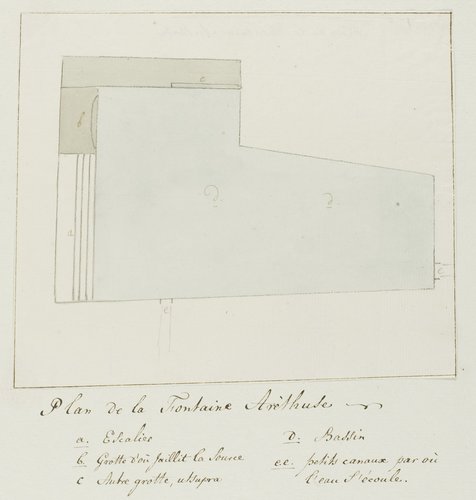 c
b
d
d
a
e
e
Plan de la Fontaine Aréthuse
a. Escalier
b. Grotte d'où Jaillit la Source
c Autre grotte, ut supra
D. Bassin
e.e. petits canaux par où
l'eau S'écoule.